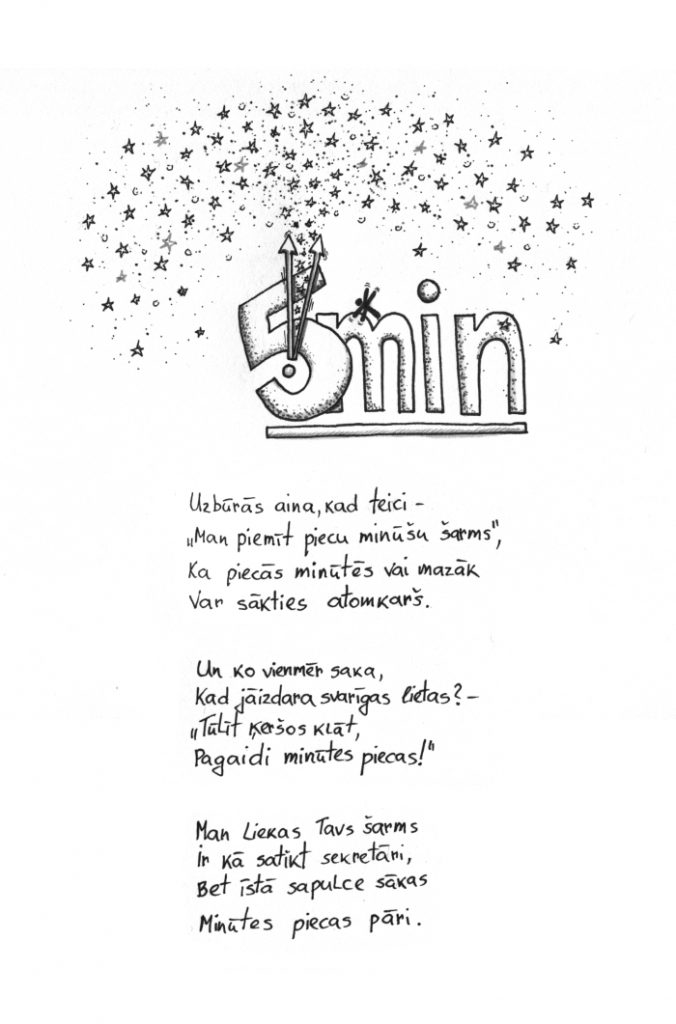 5min
Uzbūrās aina, kad teici –
„Man piemīt piecu minūšu šarms",
Ka piecās minūtēs vai mazāk
Var sākties atomkarš.
Un ko vienmēr saka,
Kad jāizdara svarīgas lietas? –
„Tūlīt ķeršos klāt,
Pagaidi minūtes piecas!"
Man liekas Tavs šarms
Ir kā satikt sekretāri,
Bet īstā sapulce sākas
Minūtes piecas pāri.